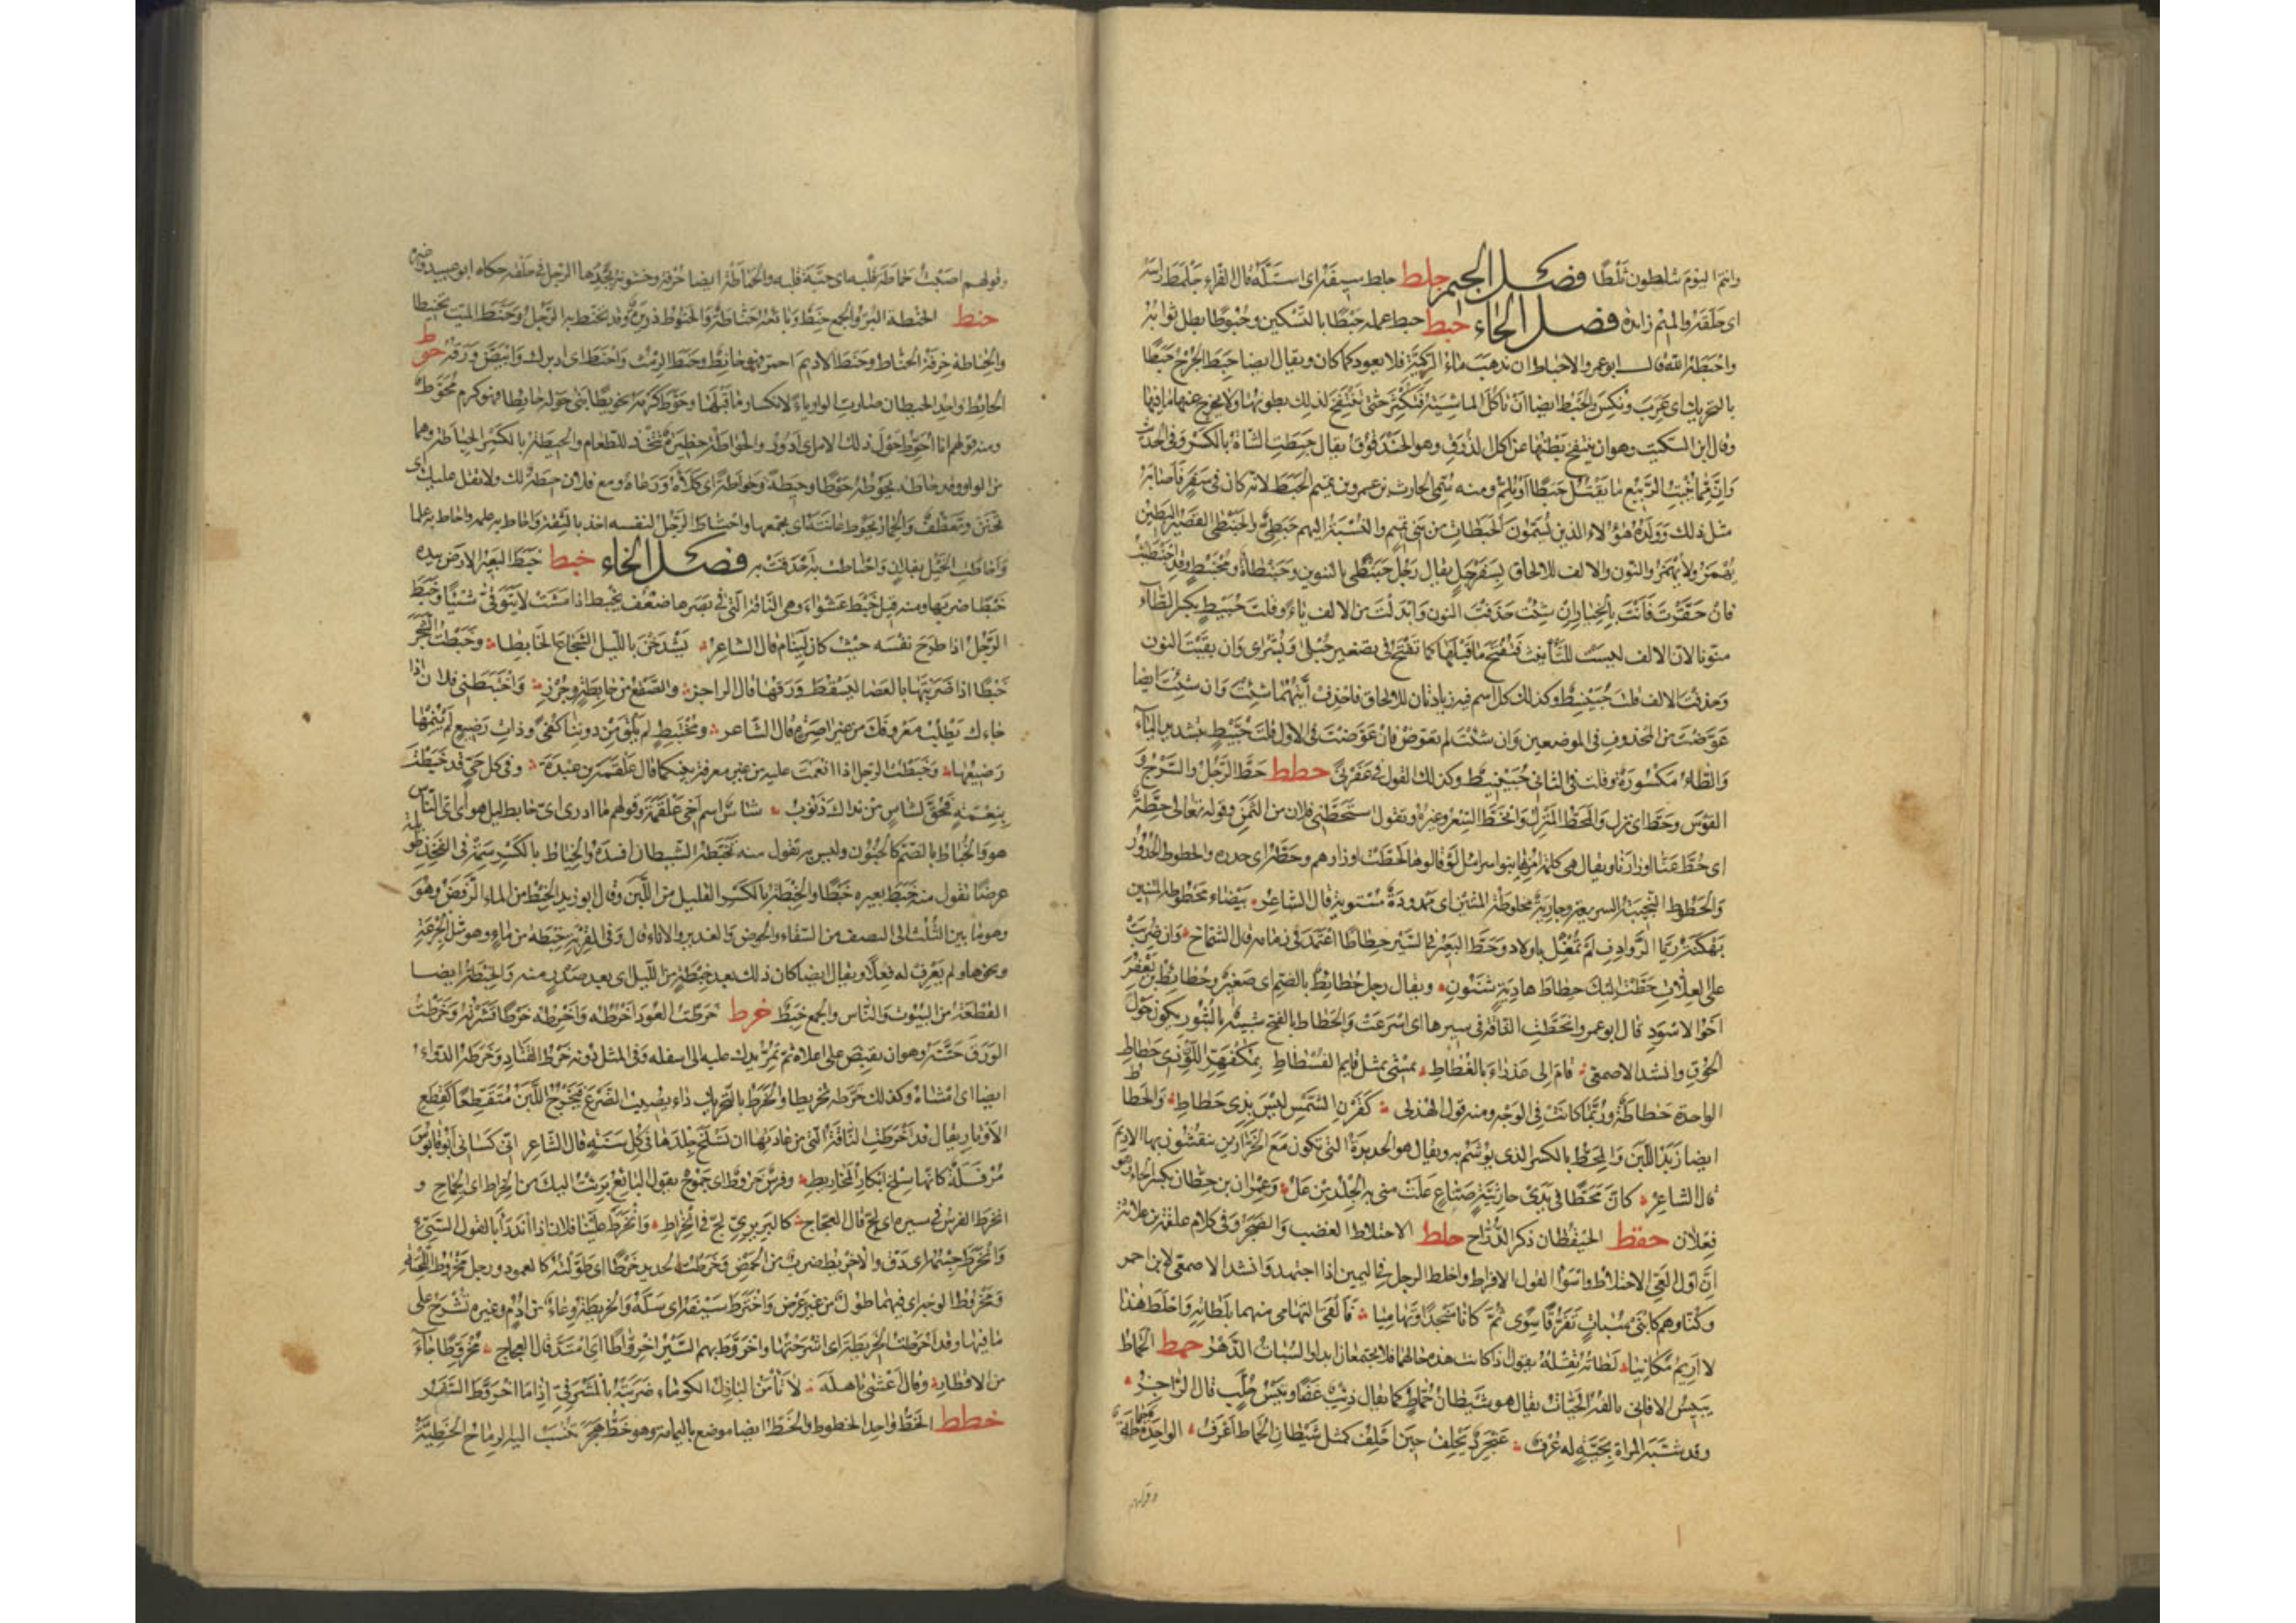 وانتم اليوم تثلطون ثلطا فصل الجيم جلط جلط سيفه اى استله قال الفراء جلمط راسه
اى حلقه والميم زائدة فصل الحاء حبط حبط عمله حبطا بالتسكين وحبوطا بطل ثوابه
واحبطه الله قال ابو عمرو الاحباط ان تذهب ماء الركية فلا يعود كما كان ويقال ايضا حبط الجرح حبطا
بالتحريك اى عرب ونكس والحبط ايضا ان تاكل الماشية فتكثر حتى تنتفخ لذلك بطونها ولا يخرج عنها ما فيها
وقال ابن السكيت وهو ان ينتفخ بطنها عن اكل الذرق وهو الحندقوق يقال حبطت الشاة بالكسر وفى الحديث
وان مما ينبت الربيع ما يقتل حبطا او يلم ومنه سمى الحارث بن عمرو بن تميم الحبط لانه كان فى سفر فاصابه
مثل ذلك وولده هؤلاء الذين يسمون الحبطات من بنى تميم والنسبة اليهم حبطى والحبنطى القصير البطين
يهمز ولا يهمز والنون والالف للالحاق بسفرجل يقال رجل حبنطى بالتنوين وحبنطاة ومحبنط وقد احبنطيت
فان حقرت فانت بالخيار ان شئت حذفت النون وابدلت من الالف ياء وقلت حبيط بكسر الطاء
منونا لان الالف ليست للتانيث فتفتح ما قبلها كما تفتح فى تصغير حبلى وبشرى وان بقيت النون
وحذفت الالف قلت حبينط وكذلك كل اسم فيه زيادتان للالحاق فاحذف ايتهما شئت وان شئت ايضا
عوضت من المحذوف فى الموضعين وان شئت لم تعوض فان عوضت فى الاول قلت حبيط بتشديد الياء
والطاء مكسورة وقلت فى الثانى حبينيط وكذلك القول فى عفرنى حطط حط الرحل والسرج و
القوس وحط اى نزل والمحط المنزل وانحط السعر وغيره وتقول استحطنى فلان من الثمن وقوله تعالى حطة
اى حط عنا اوزارنا ويقال هى كلمة امر بها بنو اسرائيل لو قالوها لحطت اوزارهم وحطه اى حدره والحطوط الحدور
والحطوط النجيبة السريعة وجارية محطوطة المتنين اى ممدودة مستوية قال الشاعر بيضاء محطوطة المتنين
بهكنة ريا الروادف لم تمغل باولاد وحط البعير فى السير حطاطا اعتمد فى زمامه قال الشماخ وان ضربت
على العلات حطت اليك حطاط هادية شنون ويقال رجل حطائط بالضم اى صغير وحطائط بن يعفر
اخو الاسود قال ابو عمرو انحطت الناقة فى سيرها اى اسرعت والحطاط بالفتح شبيه بالبثور يكون حول
الحوق وانشد الاصمعى قام الى عذراء بالغطاط يمشى بمثل قايم الفسطاط بمكفهر اللون ذى حطاط
الواحدة حطاطة وربما كانت فى الوجه ومنه قول الهذلى كقرن الشمس ليس بذى حطاط والحطاط
ايضا زبد اللبن والمحط بالكسر الذى يوشم به ويقال هو الحديدة التى تكون مع الخرازين ينقشون بها الاديم
قال الشاعر كان محطا فى يدى حارثية صناع علت منى به الجلد من عل وعمران بن حطان بكسر الحاء وهو
فعلان حقط الحيقطان ذكر الدراج حلط الاحتلاط الغضب والضجر وفى كلام علقمة بن علاثة
ان اول العى الاحتلاط واسوا القول الافراط واحلط الرجل فى اليمين اذا اجتهد وانشد الاصمعى لابن احمر
وكنا وهم كابنى سبات تفرقا سوى ثم كانا منجدا وتهاميا فالقى التهامى منهما بلطاته واحلط هذا
لا اريم مكانيا لطاته ثقله يقول اذا كانت هذه حالهما فلا يجتمعان ابدا والسبات الدهر حمط الحماط
يبيس الافانى تالفه الحيات يقال هو شيطان حماط كما يقال ذئب غضا وتيس حلب قال الراجز
وقد شبه المراة بحية له عرف عنجرد تحلف حين احلف كمثل شيطان الحماط اعرف الواحدة حماطة
وقولهم
وقولهم اصبت حماطة قلبه اى حبة قلبه والحماطة ايضا حرقة وخشونة يجدها الرجل فى حلقه حكاه ابو عبيد
حنط الحنطة البر والجمع حنط وبائعه حناط والحنوط ذريرة وقد تحنط به الرجل وحنط الميت تحنيطا
والحناطة حرفة الحناط وحنط الاديم احمر فهو حانط وحنط الرمث واحنط اى ادرك وابيض ورقه حوط
الحائط واحد الحيطان صارت الواو ياء لانكسار ما قبلها وحوط كرمه تحويطا بنى حوله حائطا فهو كرم محوط
ومنه قولهم انا احوط حول ذلك الامر اى ادور والحواطة حظيرة تتخذ للطعام والحيطة بالكسر الحياطة وهما
من الواو وقد حاطه يحوطه حوطا وحيطة وحياطة اى كلأه ورعاه ومع فلان حيطة لك ولا تقل عليك اى
تحنن وتعطف والحمار يحوط عانته اى يجمعها واحتاط الرجل لنفسه اخذ بالثقة واحاط به علمه واحاط به علما
واحاطت الخيل بفلان واحتاطت به احدقت به فصل الخاء خبط خبط البعير الارض بيده
خبطا ضربها ومنه قيل خبط عشواء وهى الناقة التى فى بصرها ضعف تخبط اذا مشت لا تتوقى شيئا وخبط
الرجل اذا طرح نفسه حيث كان لينام قال الشاعر يشدخن بالليل الشجاع الخابطا وخبطت الشجر
خبطا اذا ضربتها بالعصا ليسقط ورقها قال الراجز والصقع من خابطة وجرز واختبطنى فلان اذا
جاءك يطلب معروفك من غير اصرة قال الشاعر ومختبط لم يلق من دوننا كفى وذات رضيع لم ينمها
رضيعها وخبطت الرجل اذا انعمت عليه من غير معرفة بينكما قال علقمة بن عبدة وفى كل حى قد خبطت
بنعمة فحق لشاس من نداك ذنوب شاس اسم اخى علقمة وقولهم ما ادرى اى خابط ليل هو اى اى الناس
هو والخباط بالضم كالجنون وليس به تقول منه تخبطه الشيطان افسده والخباط بالكسر سمة فى الفخذ طويلة
عرضا تقول منه خبط بعيره خبطا والخبطة بالكسر القليل من اللبن وقال ابو زيد الخبط من الماء الرفض وهو
وهو ما بين الثلث الى النصف من السقاء والحوض والغدير والاناء قال وفى القربة خبطة من ماء وهو مثل الجرعة
ونحوها ولم يعرف له فعلا ويقال ايضا كان ذلك بعد خبطة من الليل اى بعد صدر منه والخبطة ايضا
القطعة من البيوت والناس والجمع خبط خرط خرطت العود اخرطه واخرطه خرطا قشرته وخرطت
الورق حتته وهو ان تقبض على اعلاه ثم تمر يدك عليه الى اسفله وفى المثل دونه خرط القتاد وخرطه الدواء
ايضا اى امشاه وكذلك خرطه تخريطا والخرط بالتحريك داء يصيب الضرع فيخرج اللبن متقطعا كقطع
الاوتار يقال قد اخرطت الناقة التى من عادتها ان تسلخ جلدها فى كل سنة قال الشاعر انى كسانى ابو قابوس
مرفلة كانها سلخ ابكار المخاريط وفرس خروط اى جموح يقول البائع برئت اليك من الخراط اى الجماح و
انخرط الفرس فى سيره اى لج قال العجاج كالبربرى لج فى انخراط وانخرط علينا فلان اذا اندرأ بالقول السيئ
وانخرط جسمه اى دق والاخريط ضرب من الحمض وخرطت الحديد خرطا اى طولته كالعمود ورجل مخروط اللحية
ومخروط الوجه اى فيهما طول من غير عرض واخترط سيفه اى سله والخريطة وعاء من ادم وغيره تشرج على
ما فيها وقد اخرطت الخريطة اى اشرجتها واخروط بهم السير اخرواطا اى امتد قال العجاج مخروطا جاء
من الاقطار وقال اعشى باهلة لا تامن البازل الكوماء ضربته بالمشرفى اذا ما اخروط السفر
خطط الخط واحد الخطوط والخط ايضا موضع باليمامة وهو خط هجر تنسب اليه الرماح الخطية